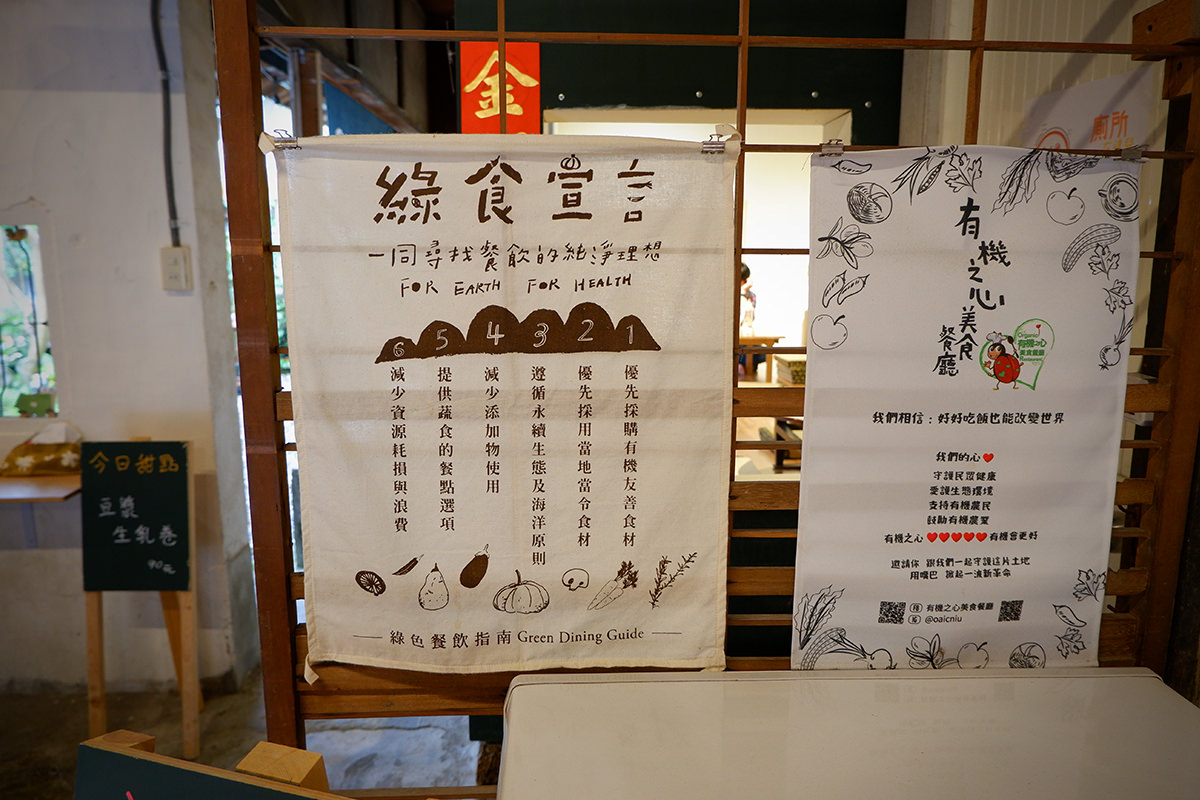 金
廁所
綠食宣言
一同尋找餐飲的純淨理想
FOR EARTH FOR HEALTH
1
優先採購有機友善食材
2
優先採用當地當令食材
3
遵循永續生態及海洋原則
4
減少添加物使用
5
提供蔬食的餐點選項
6
減少資源耗損與浪費
綠色餐飲指南 Green Dining Guide
有機之心
美食
餐廳
有機之心
美食餐廳
我們相信：好好吃飯也能改變世界
我們的心❤
守護民眾健康
愛護生態環境
支持有機農民
鼓勵有機農業
有機之心❤❤❤❤❤有機會更好
邀請你 跟我們一起守護這片土地
用嘴巴 掀起一波新革命
有機之心美食餐廳
@oaicniu
今日甜點
豆漿
生乳卷
90元